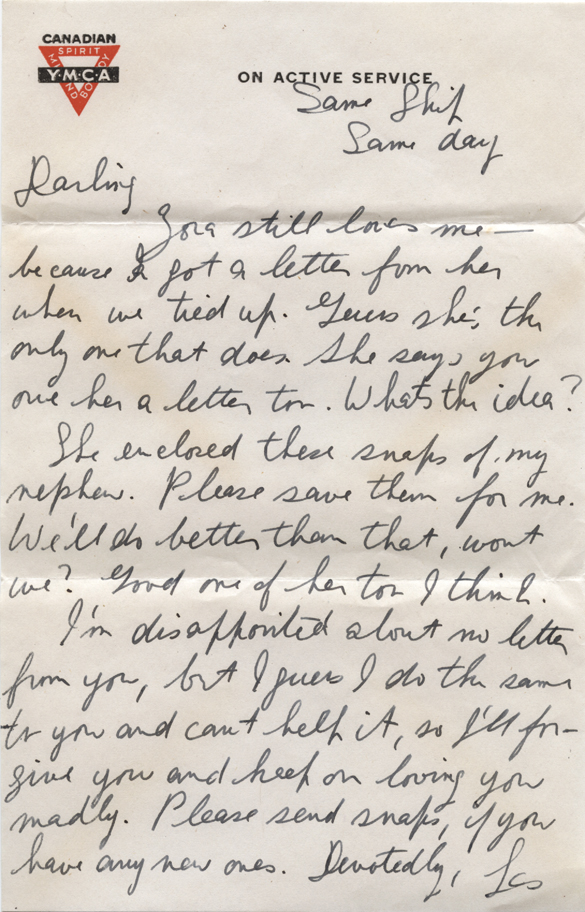 CANADIAN
SPIRIT
MIND
BODY
Y·M·C·A
ON ACTIVE SERVICE
Same Ship
Same day
Darling
Zora still loves me —
because I got a letter from her
when we tied up. Guess she's the
only one that does. She says you
owe her a letter too. What's the idea?
She enclosed these snaps of my
nephew. Please save them for me.
We'll do better than that, wont
we? Good one of her too I think.
I'm disappointed about no letter
from you, but I guess I do the same
to you and can't help it, so I'll for-
give you and keep on loving you
madly. Please send snaps, if you
have any new ones. Devotedly, Les